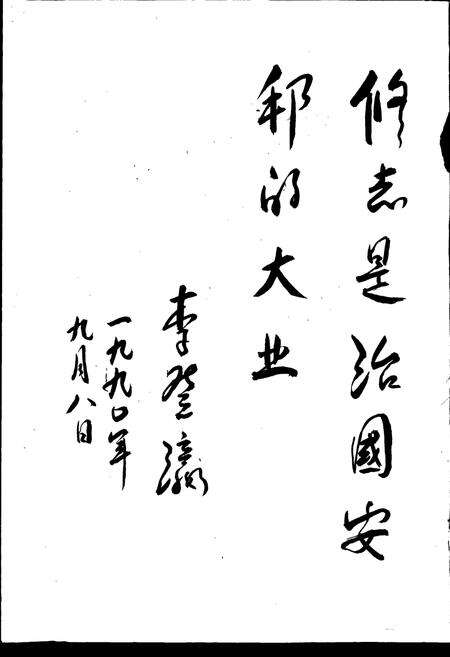 修志是治國安
邦的大业
李登瀛
一九九〇年
九月八日